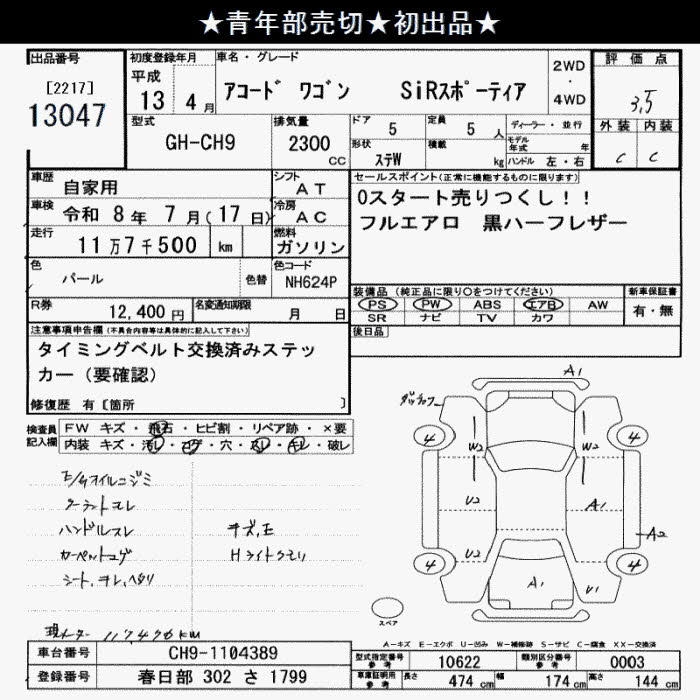 ★青年部売切★初出品★
出品番号
[2217]
13047
初度登録年月
平成
13 4月
車名・グレード
アコード ワゴン SiRスポーティア
2WD
・
4WD
評価点
3.5
外装 内装
C C
型式
GH-CH9
排気量
2300
CC
ドア 5
定員 5 人
形状 ステW
積載 kg
ディーラー・並行
モデル年式 年
ハンドル 左・右
車歴 自家用
シフト AT
車検 令和 8年 7月(17日)
冷房 AC
走行 11万7千500 km
燃料 ガソリン
色 パール 色替
色コード NH624P
R券 12,400円
名変通知期限 月 日
セールスポイント(正常に機能するものに限ります)
0スタート売りつくし!!
フルエアロ 黒ハーフレザー
装備品(純正品に限り○をつけてください)
PS PW ABS エアB AW
SR ナビ TV カワ
新車保証書
有・無
後日品
注意事項申告欄(不具合内容等は具体的に記入して下さい)
タイミングベルト交換済みステッ
カー(要確認)
修復歴 有〔箇所 〕
検査員記入欄
FW キズ・飛石・ヒビ割・リペア跡・×要
内装 キズ・汚レ・コゲ・穴・スレ・キレ・破レ
E/Gオイルニジミ
クーラントモレ
ハンドルスレ
カーペットコゲ
シート、ヨレ、ヘタリ
キズ、E
Hライトクモリ
現メーター 117,476km
A1
4 4
W2 W2
U2
A1
A2
U2
4 4
A1
U1
スペア
A-キズ E-エクボ U-凹み W-補修跡 S-サビ C-腐食 XX-交換済
車台番号 CH9-1104389
登録番号 春日部 302 さ 1799
型式指定番号 参考 10622
類別区分番号 参考 0003
車庫証明用 参考
長さ 474 cm
幅 174 cm
高さ 144 cm